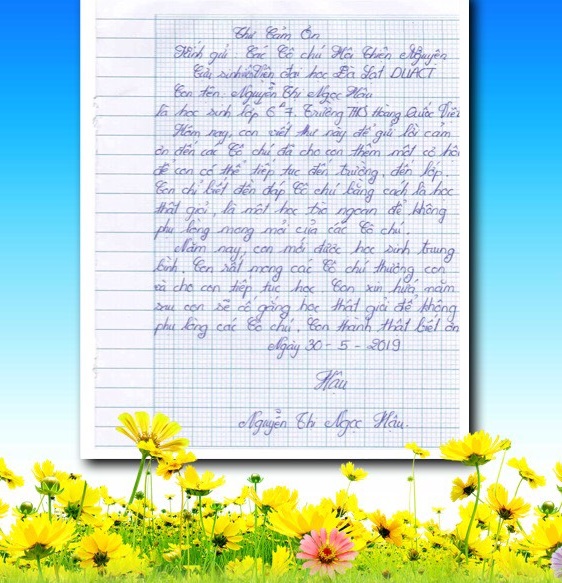 Thư Cảm Ơn
Kính gửi: Các Cô chú Hội Thiện Nguyện
Cựu sinh viên đại học Đà Lạt DUACT
Con tên: Nguyễn Thị Ngọc Hậu
là học sinh lớp 6A7. Trường THCS Hoàng Quốc Việt
Hôm nay, con viết thư này để gửi lời cảm
ơn đến các Cô chú đã cho con thêm một cơ hội
để con có thể tiếp tục đến trường, đến lớp.
Con chỉ biết đền đáp Cô chú bằng cách là học
thật giỏi, là một học trò ngoan để không
phụ lòng mong mỏi của các Cô chú.
Năm nay, con mới được học sinh trung
bình. Con rất mong các Cô chú thương con
và cho con tiếp tục học. Con xin hứa năm
sau con sẽ cố gắng học thật giỏi để không
phụ lòng các Cô chú. Con thành thật biết ơn
Ngày 30 - 5 - 2019
Hậu
Nguyễn Thị Ngọc Hậu.